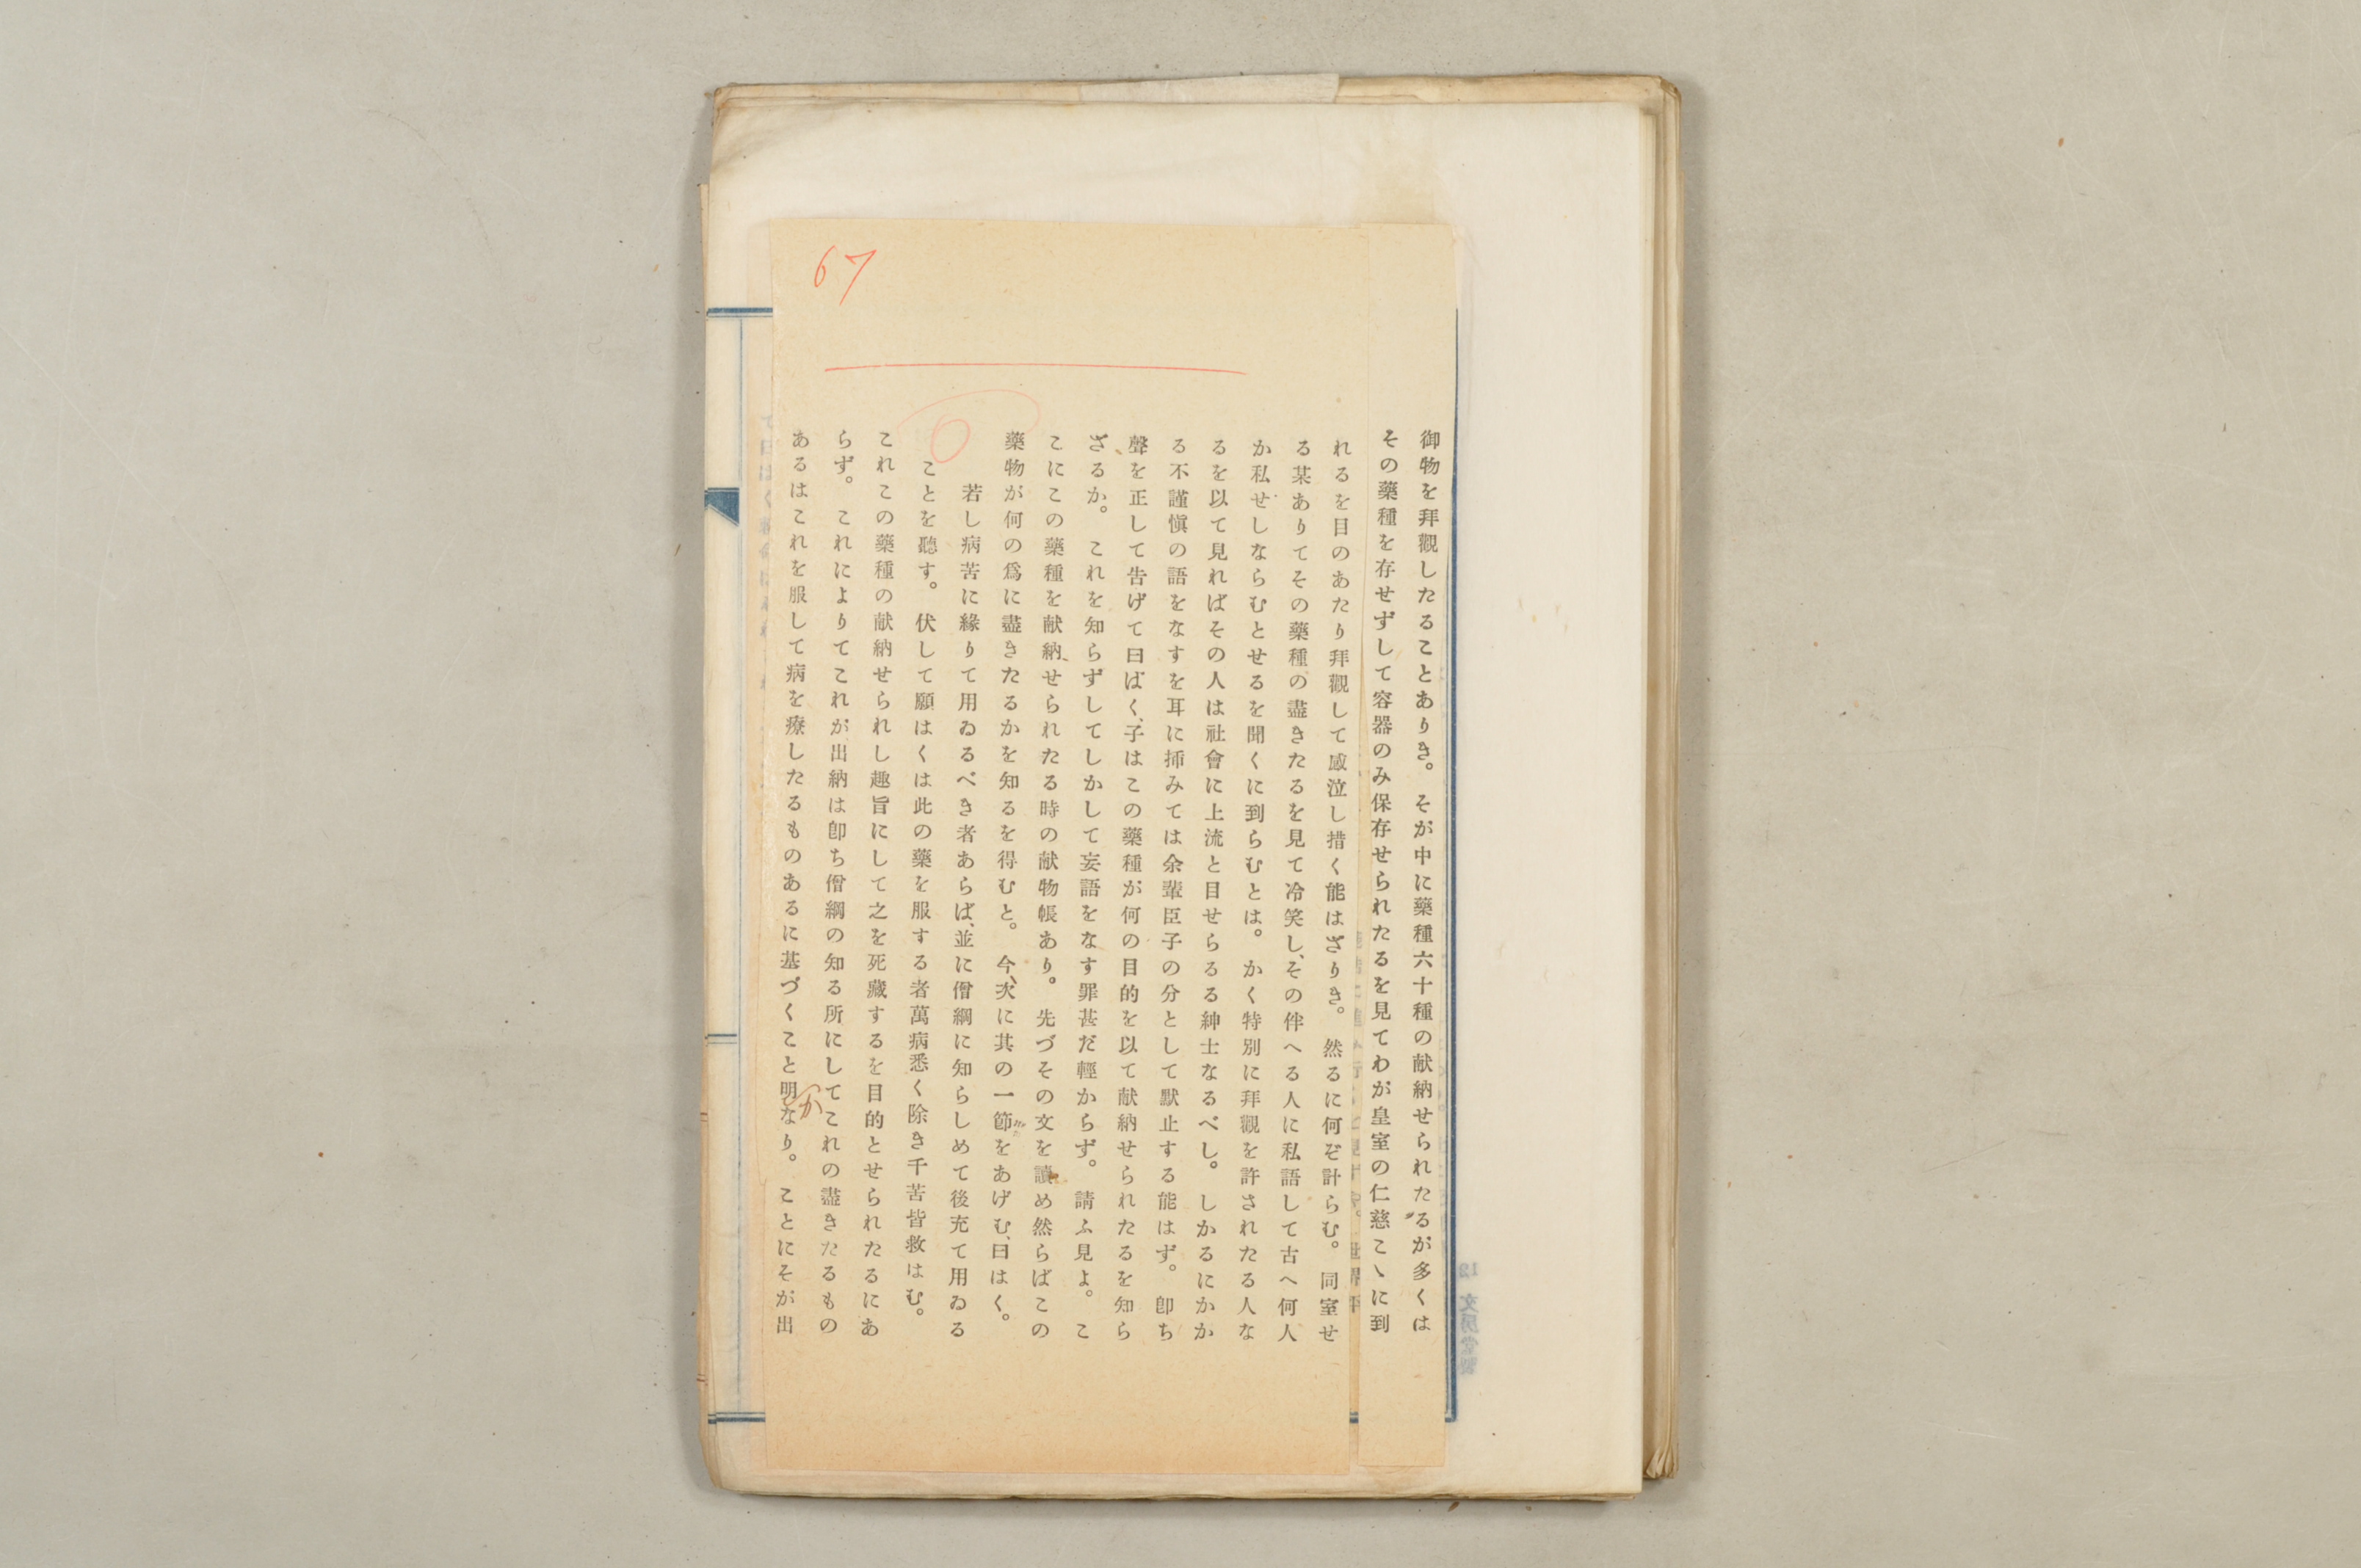 67
御物を拜觀したることありき。そが中に藥種六十種の献納せられたるが多くは
その藥種を存せずして容器のみ保存せられたるを見てわが皇室の仁慈こゝに到
れるを目のあたり拜觀して感泣し措く能はざりき。然るに何ぞ計らむ。同室せ
る某ありてその藥種の盡きたるを見て冷笑し、その伴へる人に私語して古へ何人
か私せしならむとせるを聞くに到らむとは。かく特別に拜觀を許されたる人な
るを以て見ればその人は社會に上流と目せらるる紳士なるべし。しかるにかか
る不謹愼の語をなすを耳に挿みては余輩臣子の分として默止する能はず。卽ち
聲を正して告げて曰ばく、子はこの藥種が何の目的を以て献納せられたるを知ら
ざるか。これを知らずしてしかして妄語をなす罪甚だ輕からず。請ふ見よ。こ
こにこの藥種を献納せられたる時の献物帳あり。先づその文を讀め然らばこの
藥物が何の爲に盡きたるかを知るを得むと。今、次に其の一節をあげむ、曰はく。
若し病苦に緣りて用ゐるべき者あらば、並に僧綱に知らしめて後充て用ゐる
ことを聽す。伏して願はくは此の藥を服する者萬病悉く除き千苦皆救はむ。
これこの藥種の献納せられし趣旨にして之を死藏するを目的とせられたるにあ
らず。これによりてこれが出納は卽ち僧綱の知る所にしてこれの盡きたるもの
あるはこれを服して病を療したるものあるに基づくこと明なり。ことにそが出
か
12 文房堂製